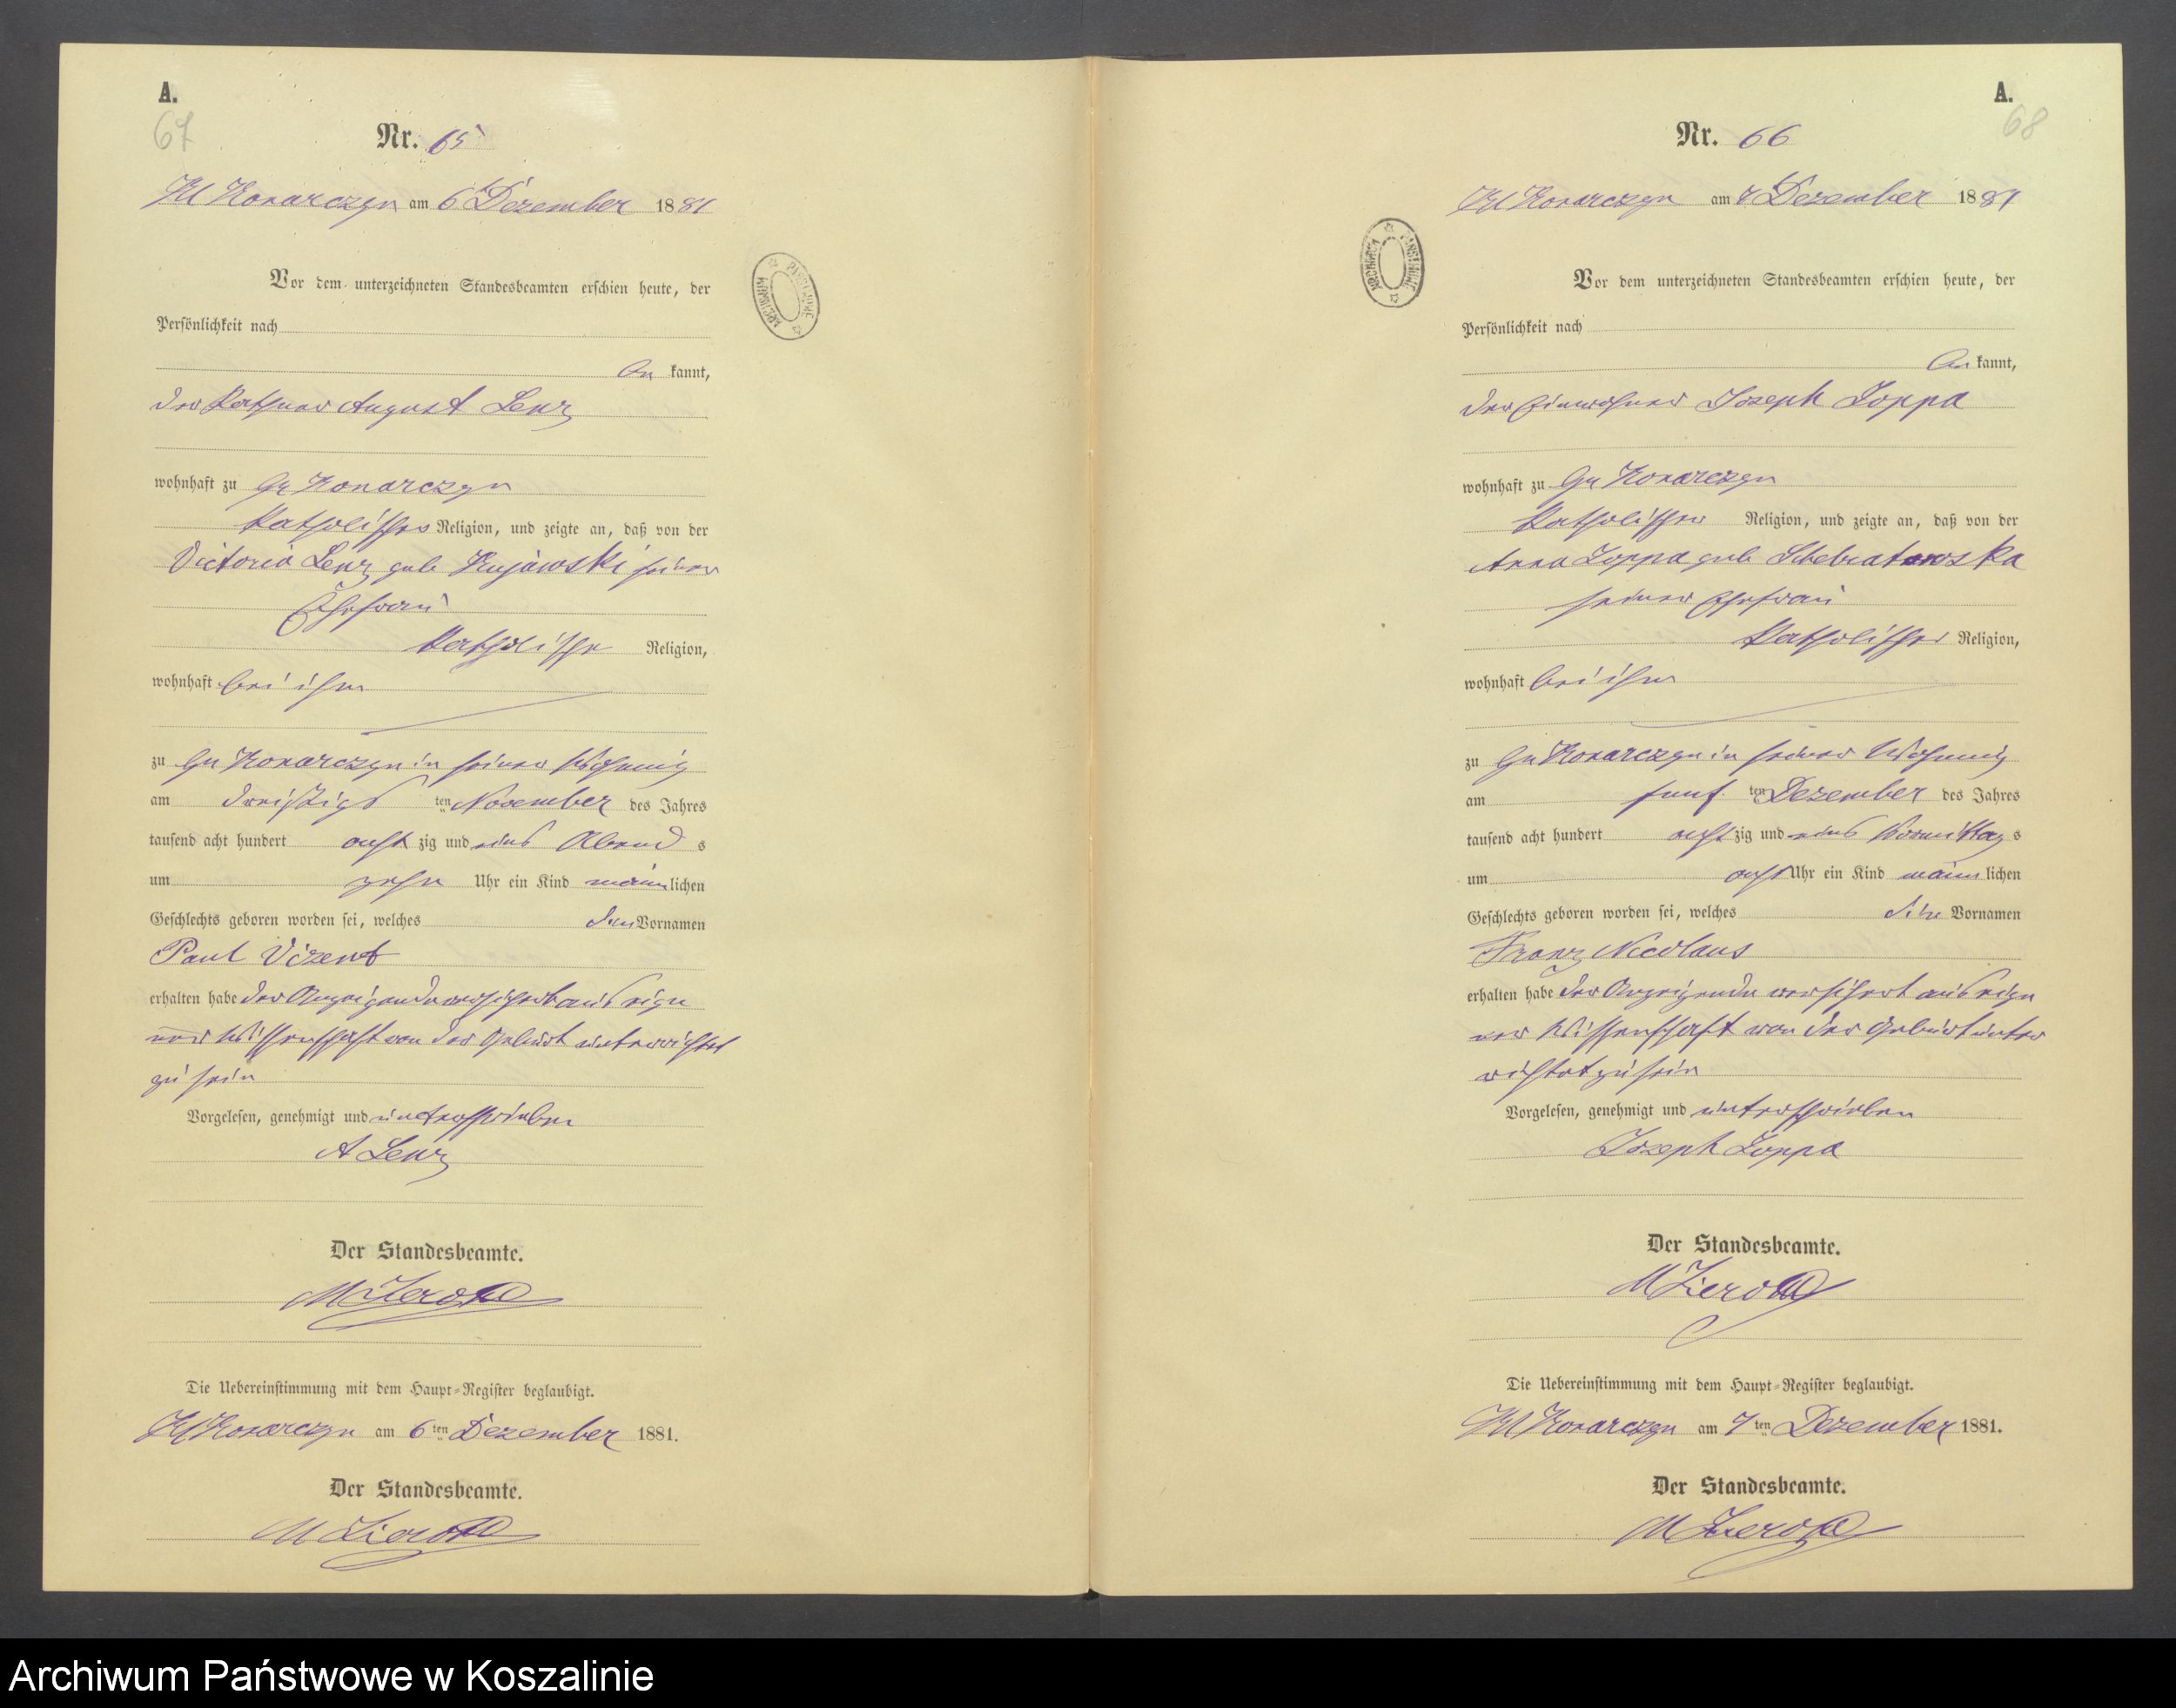 A.
67
Nr. 65
Kl Konarczyn am 6t Dezember 1881
Vor dem unterzeichneten Standesbeamten erschien heute, der
Persönlichkeit nach
be kannt,
der Kathner August Lenz
wohnhaft zu Gr Konarczyn
katholischer Religion, und zeigte an, daß von der
Victoria Lenz geb Kujawski seiner
Ehefrau
katholische Religion,
wohnhaft bei ihm
zu Gr Konarczyn in seiner Wohnung
am dreißigs ten November des Jahres
tausend acht hundert acht zig und eins Abend s
um zehn Uhr ein Kind männ lichen
Geschlechts geboren worden sei, welches den Vornamen
Paul Vizent
erhalten habe der Anzeigende versichert aus eige
ner Wissenschaft von der Geburt unterrichtet
zu sein
Vorgelesen, genehmigt und unterschrieben
A Lenz
Der Standesbeamte.
Die Uebereinstimmung mit dem Haupt-Register beglaubigt.
Kl Konarczyn am 6 ten Dezember 1881.
Der Standesbeamte.
ARCHIWUM PAŃSTWOWE
A.
68
Nr. 66
Kl Konarczyn am 7t Dezember 1881
Vor dem unterzeichneten Standesbeamten erschien heute, der
Persönlichkeit nach
be kannt,
der Einwohner Joseph Loppa
wohnhaft zu Gr Konarczyn
katholischer Religion, und zeigte an, daß von der
Anna Loppa geb
seiner Ehefrau
katholischer Religion,
wohnhaft bei ihm
zu Gr Konarczyn in seiner Wohnung
am fünf ten Dezember des Jahres
tausend acht hundert acht zig und eins Vormittag s
um acht Uhr ein Kind männ lichen
Geschlechts geboren worden sei, welches die Vornamen
Franz Nicolaus
erhalten habe der Anzeigende versichert aus eige
ner Wissenschaft von der Geburt unter
richtet zu sein
Vorgelesen, genehmigt und unterschrieben
Joseph Loppa
Der Standesbeamte.
Die Uebereinstimmung mit dem Haupt-Register beglaubigt.
Kl Konarczyn am 7 ten Dezember 1881.
Der Standesbeamte.
ARCHIWUM PAŃSTWOWE
Archiwum Państwowe w Koszalinie